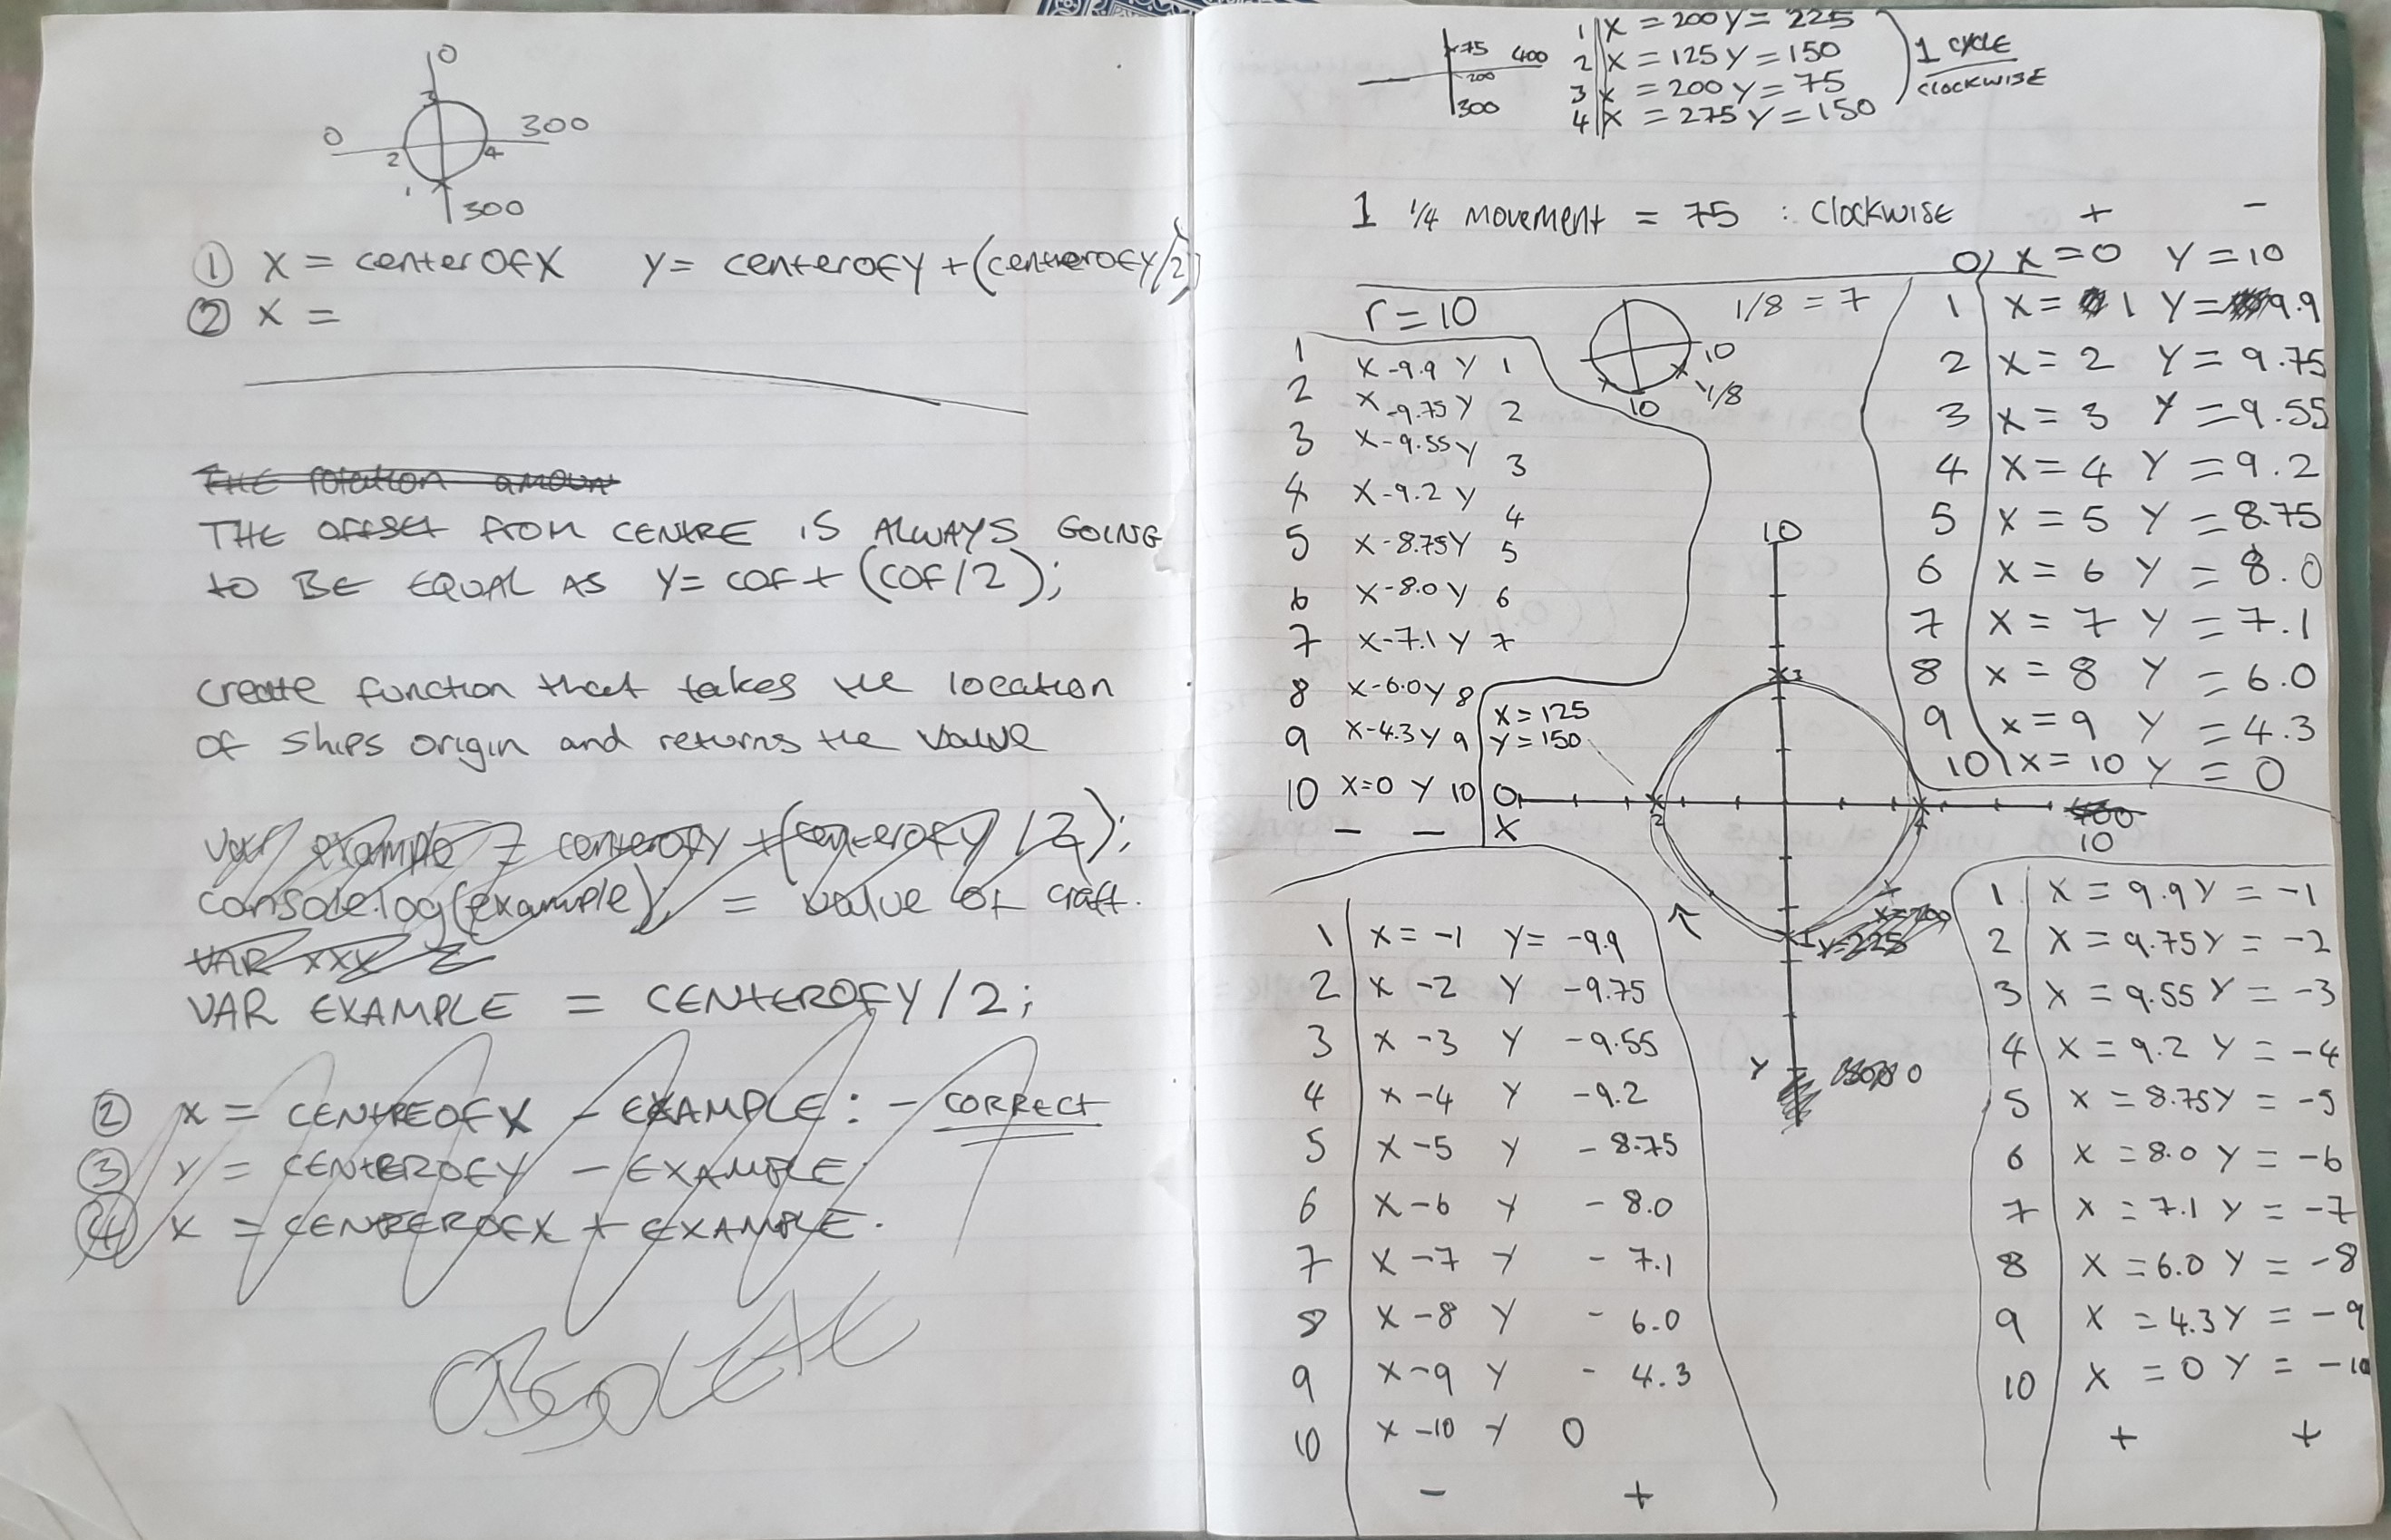 0
3
0 300
2 4
1
300
① X = centerOfX Y = centerOfY + (centerofy/2)
② X =
THE rotation amount
THE OFFSET FROM CENTRE IS ALWAYS GOING
to BE EQUAL AS Y= COF + (COF/2);
create function that takes the location
of ships origin and returns the value
var example = centerofy + (centerofy /2);
console.log(example); = value of craft.
VAR XXX =
VAR EXAMPLE = CENTEROFY/2;
② X = CENTREOFX - EXAMPLE: - CORRECT
③ Y = CENTEROFY - EXAMPLE.
④ X = CENTEROFX + EXAMPLE.
OBSOLETE
75 400
200
300
1 X = 200 Y = 225
2 X = 125 Y = 150
3 X = 200 Y = 75
4 X = 275 Y = 150
1 CYCLE
CLOCKWISE
1 1/4 MOVEMENT = 75 : CLOCKWISE + -
r = 10
1/8 = 7
10
1/8
10
0 X = 0 Y = 10
1 X = 1 Y = 9.9
2 X = 2 Y = 9.75
3 X = 3 Y = 9.55
4 X = 4 Y = 9.2
5 X = 5 Y = 8.75
6 X = 6 Y = 8.0
7 X = 7 Y = 7.1
8 X = 8 Y = 6.0
9 X = 9 Y = 4.3
10 X = 10 Y = 0
1 X -9.9 Y 1
2 X -9.75 Y 2
3 X -9.55 Y 3
4 X -9.2 Y 4
5 X -8.75 Y 5
6 X -8.0 Y 6
7 X -7.1 Y 7
8 X -6.0 Y 8
9 X -4.3 Y 9
10 X=0 Y 10
- -
X = 125
Y = 150
10
3
0
X
2 4
400
10
1
X=200
Y=225
Y 0
1 X = -1 Y = -9.9
2 X -2 Y -9.75
3 X -3 Y -9.55
4 X -4 Y -9.2
5 X -5 Y - 8.75
6 X -6 Y - 8.0
7 X -7 Y - 7.1
8 X -8 Y - 6.0
9 X -9 Y - 4.3
10 X -10 Y 0
- +
1 X = 9.9 Y = -1
2 X = 9.75 Y = -2
3 X = 9.55 Y = -3
4 X = 9.2 Y = -4
5 X = 8.75 Y = -5
6 X = 8.0 Y = -6
7 X = 7.1 Y = -7
8 X = 6.0 Y = -8
9 X = 4.3 Y = -9
10 X = 0 Y = -10
+ +